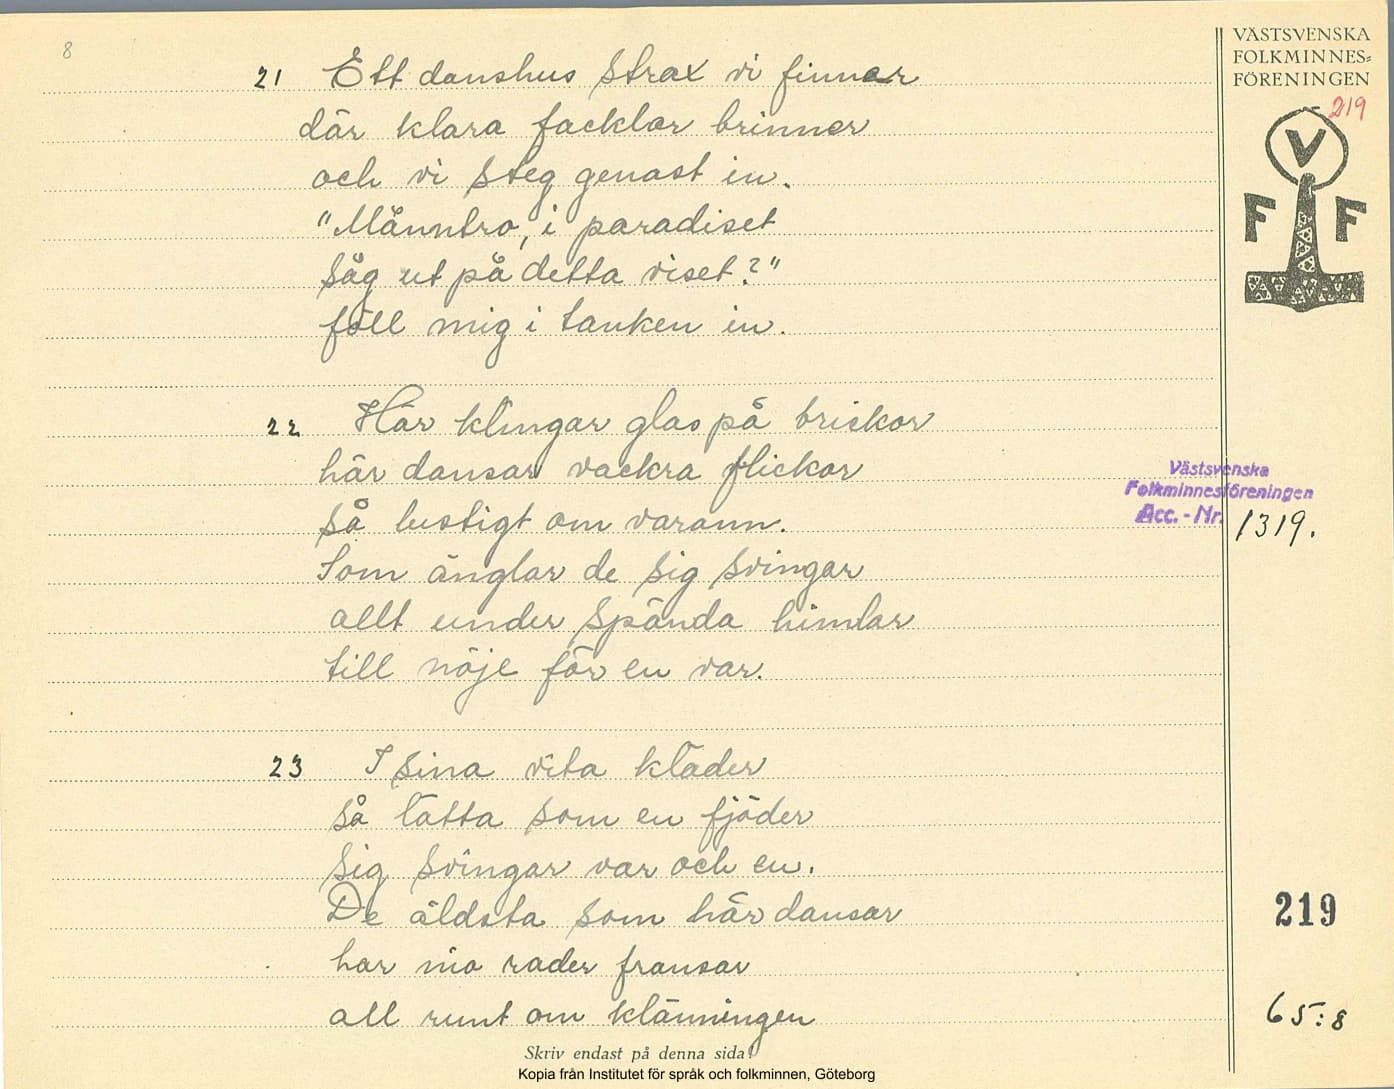 8
VÄSTSVENSKA
FOLKMINNES=
FÖRENINGEN
219
V
F F
21 Ett danshus strax vi finner
där klara facklor brinner
och vi steg genast in.
"Månntro, i paradiset
såg ut på detta viset?"
föll mig i tanken in.
22 Här klingar glas på brickor
här dansar vackra flickor
så lustigt om varann.
Som änglar de sig svingar
allt under spända himlar
till nöje för en var.
Västsvenska
Folkminnesföreningen
Acc. - Nr. 1319.
23 I sina vita kläder
så lätta som en fjäder
sig svingar var och en.
De äldsta som här dansar
har nio rader fransar
all runt om klänningen
219
65:8
Skriv endast på denna sida!
Kopia från Institutet för språk och folkminnen, Göteborg